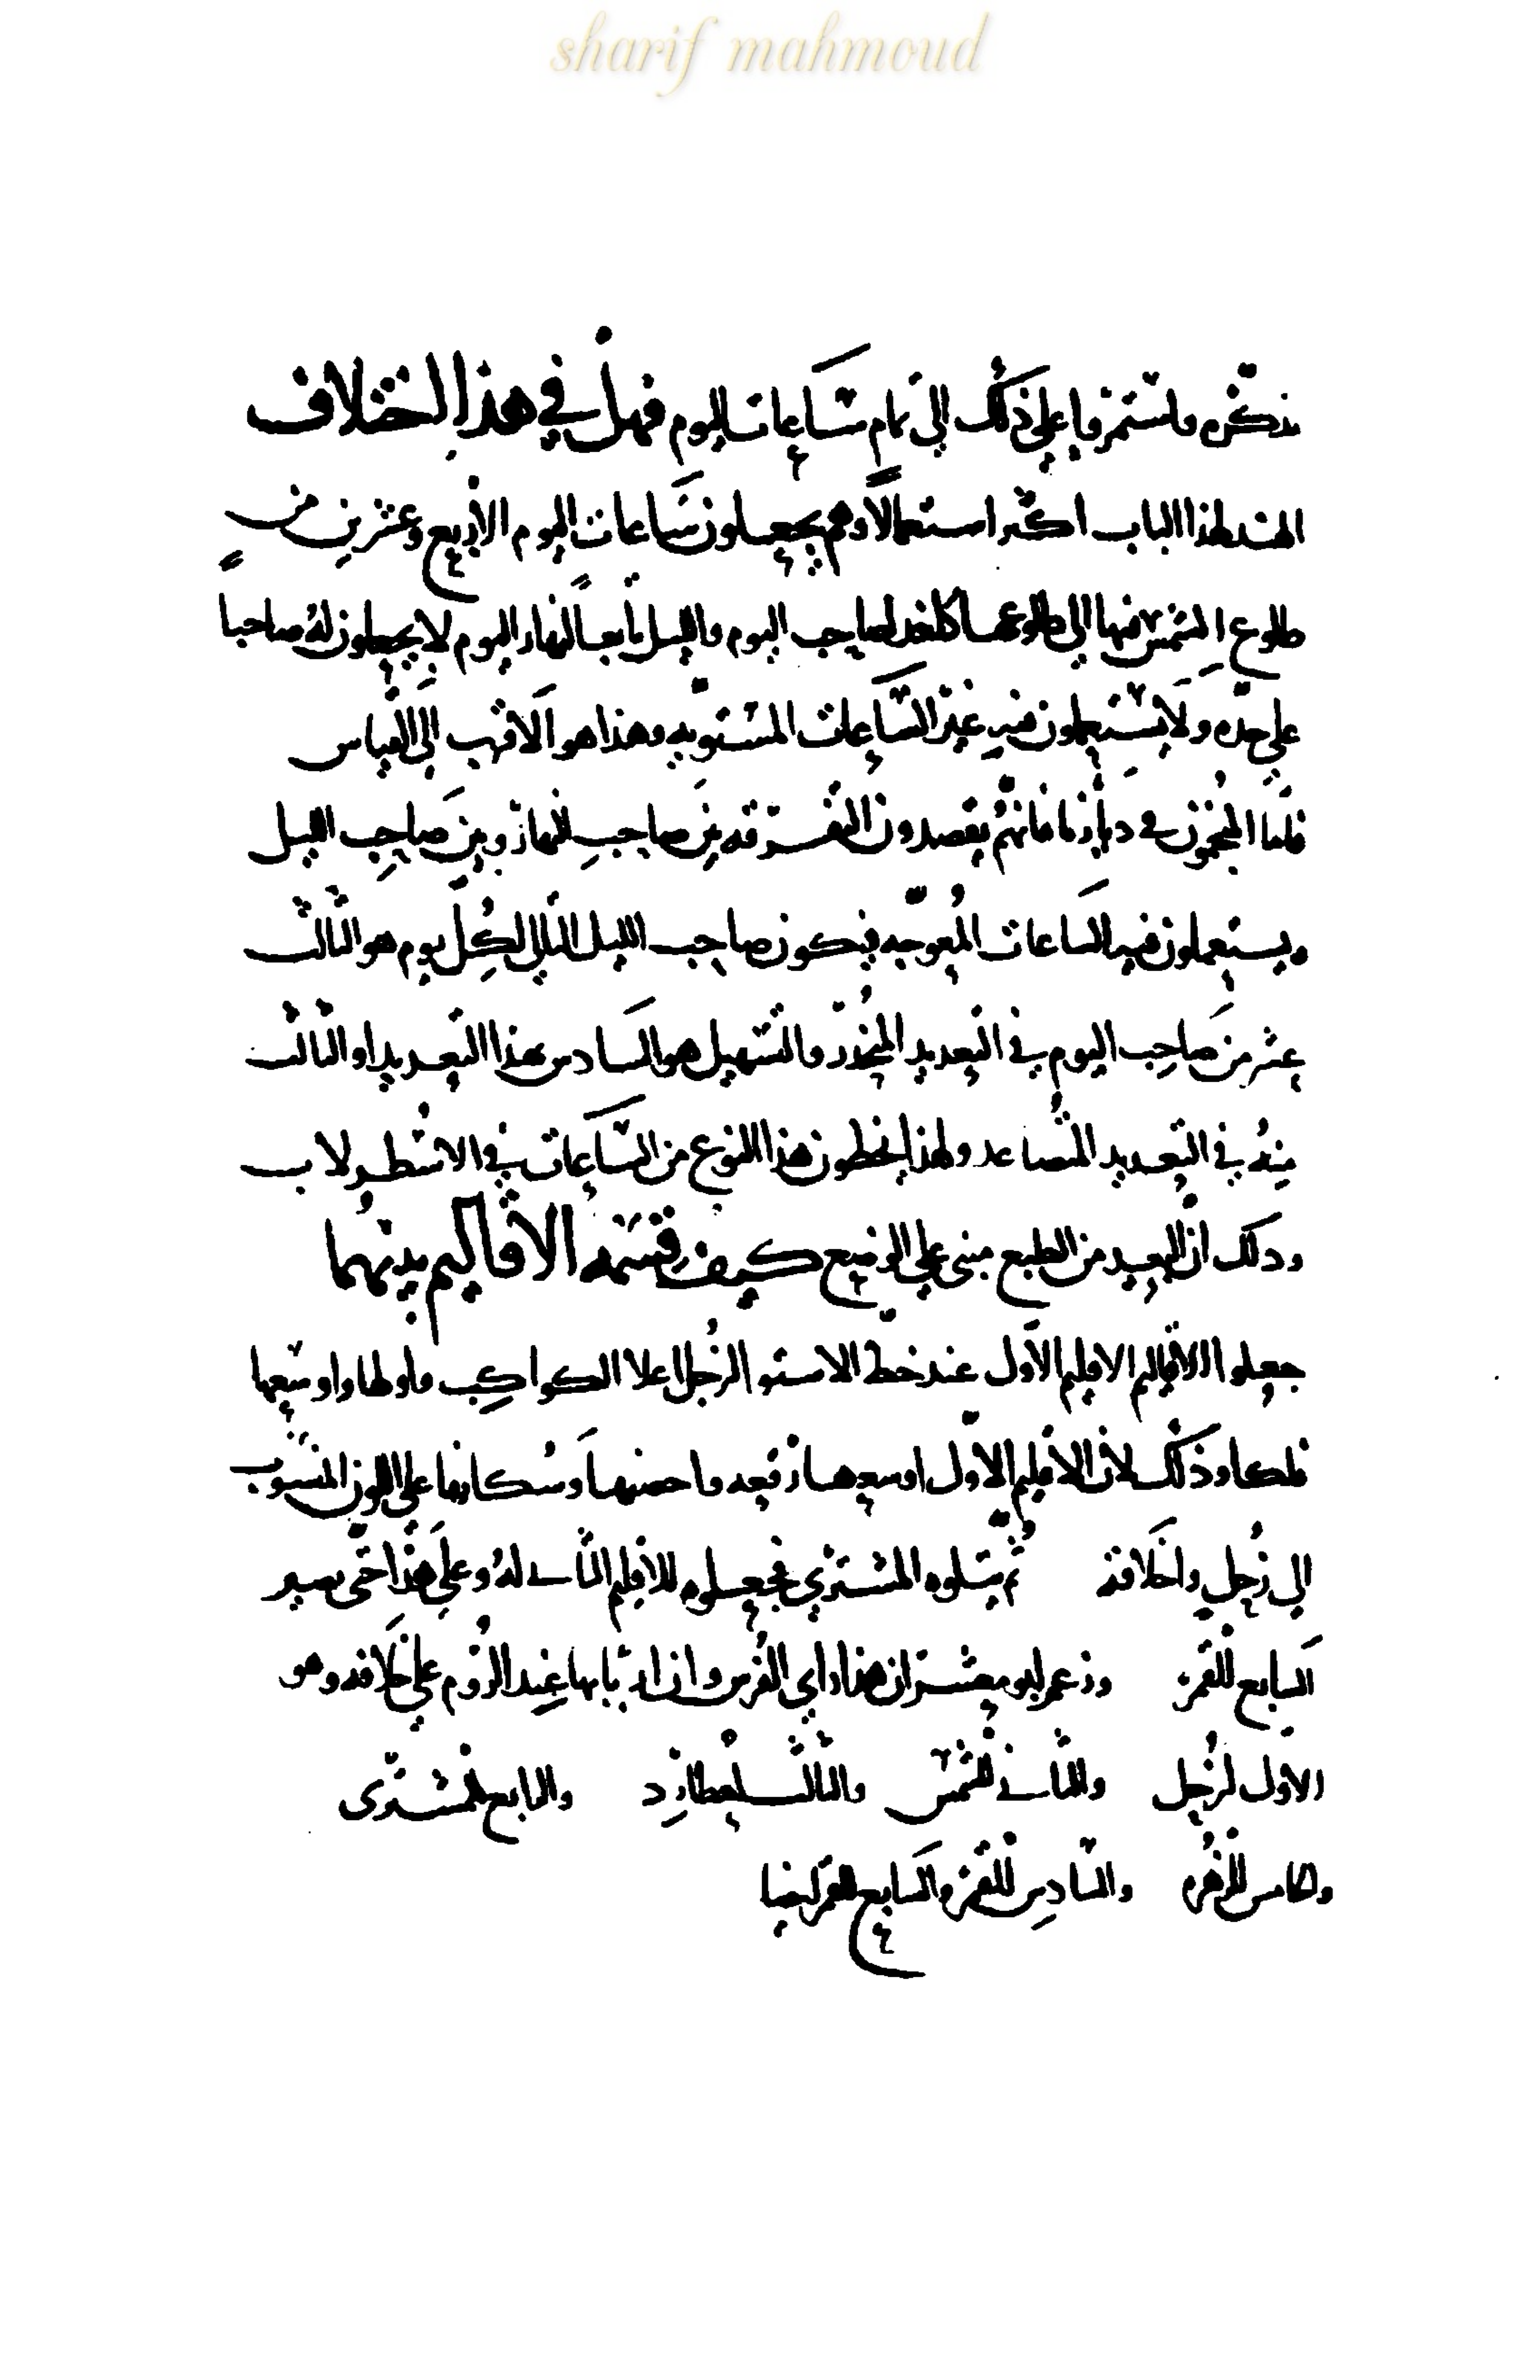 sharif mahmoud
نذكره واستمروا على ذلك الى تمام ساعات اليوم فهل في هذا اختلاف
الهند لهذا الباب اكثر استعمالا وهم يجعلون ساعات اليوم الاربع وعشرين من
طلوع الشمس فيها الى طلوعها كلغد لصاحب اليوم والليل تابعا لنهار اليوم لا يجعلون له صاحبا
على حده ولا يستعملون فيه غير الساعات المستويه وهذا هو الاقرب الى القياس
فاما المنجمون في ديارنا فانهم يقصدون التفرقه بين صاحب النهار وبين صاحب الليل
ويستعملون فيه الساعات المعوجه فيكون صاحب الليل التالى لكل يوم هو الثالث
عشر من صاحب اليوم في التعديد المنحدر والتسهيل هو السادس بهذا التعديد او الثالث
منه في التعديد المتصاعد ولهذا يخطون هذا النوع من الساعات في الاسطرلاب
وذلك ان البعيد من الطبع مبنى على الوضع كيف قسمه الاقاليم بينهما
جعلوا الاقاليم الاقليم الاول عند خط الاستوا لزحل اعلا الكواكب واولها واوسعها
فلكا وذلك لان الاقليم الاول اوسعها رقعه واخصبها وسكانها على اللون المنسوب
الى زحل واخلاقه ثم يتلوه المشترى فجعلوه للاقليم الثانى له وعلى هذا حتى يصير
السابع للقمر وزعم ابو معشر ان هذا راى الفرس وان اربابها عند الروم على خلافه وهو
الاول لزحل والثانى للشمس والثالث لعطارد والرابع للمشترى
والخامس للزهره والسادس للقمر والسابع للقمر ايضا